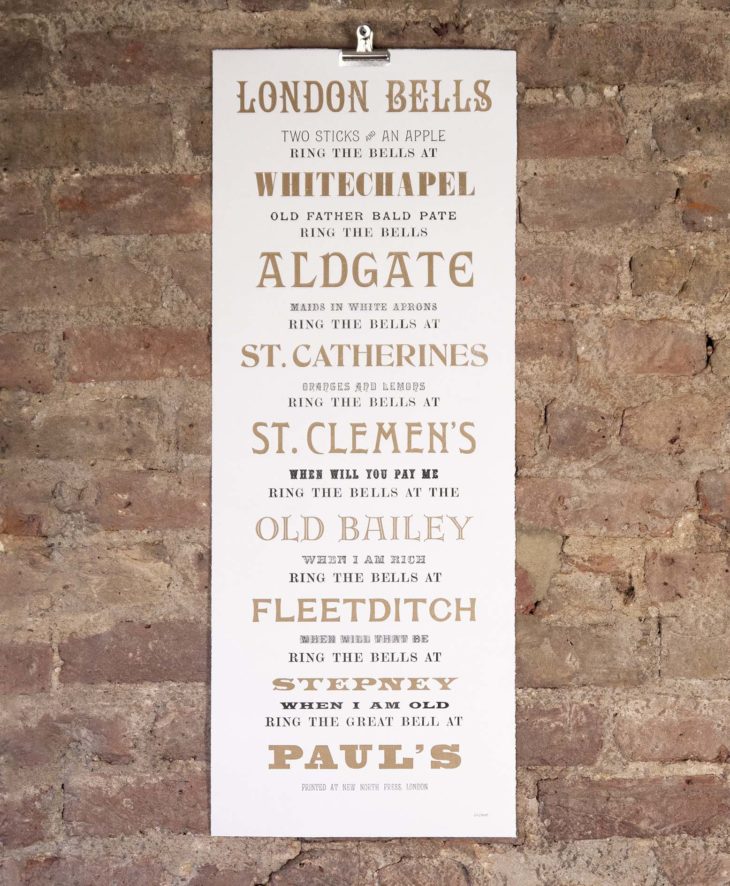 LONDON BELLS
TWO STICKS AND AN APPLE
RING THE BELLS AT
WHITECHAPEL
OLD FATHER BALD PATE
RING THE BELLS
ALDGATE
MAIDS IN WHITE APRONS
RING THE BELLS AT
ST. CATHERINES
ORANGES AND LEMONS
RING THE BELLS AT
ST. CLEMEN'S
WHEN WILL YOU PAY ME
RING THE BELLS AT THE
OLD BAILEY
WHEN I AM RICH
RING THE BELLS AT
FLEETDITCH
WHEN WILL THAT BE
RING THE BELLS AT
STEPNEY
WHEN I AM OLD
RING THE GREAT BELL AT
PAUL'S
PRINTED AT NEW NORTH PRESS LONDON